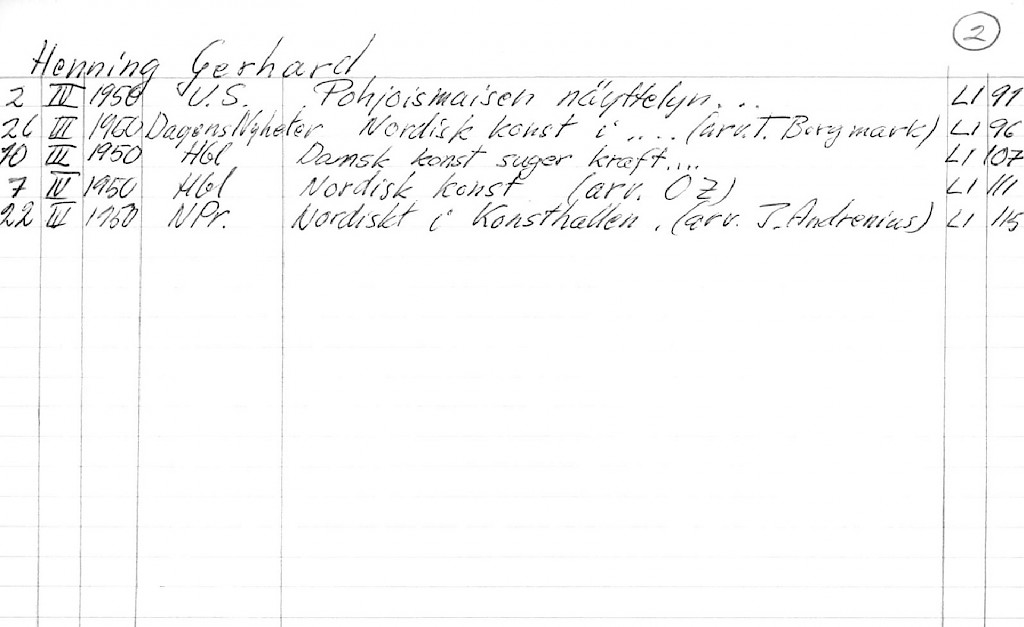 2
Henning Gerhard
2 IV 1950 U.S. Pohjoismaisen näyttelyn... LI 91
26 III 1960 Dagens Nyheter Nordisk konst i .... (arv. T. Borgmark) LI 96
10 III 1950 Hbl Dansk konst suger kraft.... LI 107
7 IV 1950 Hbl Nordisk konst (arv. ÖZ) LI 111
22 IV 1950 NPr. Nordiskt i Konsthallen. (arv. J. Andrenius) LI 115